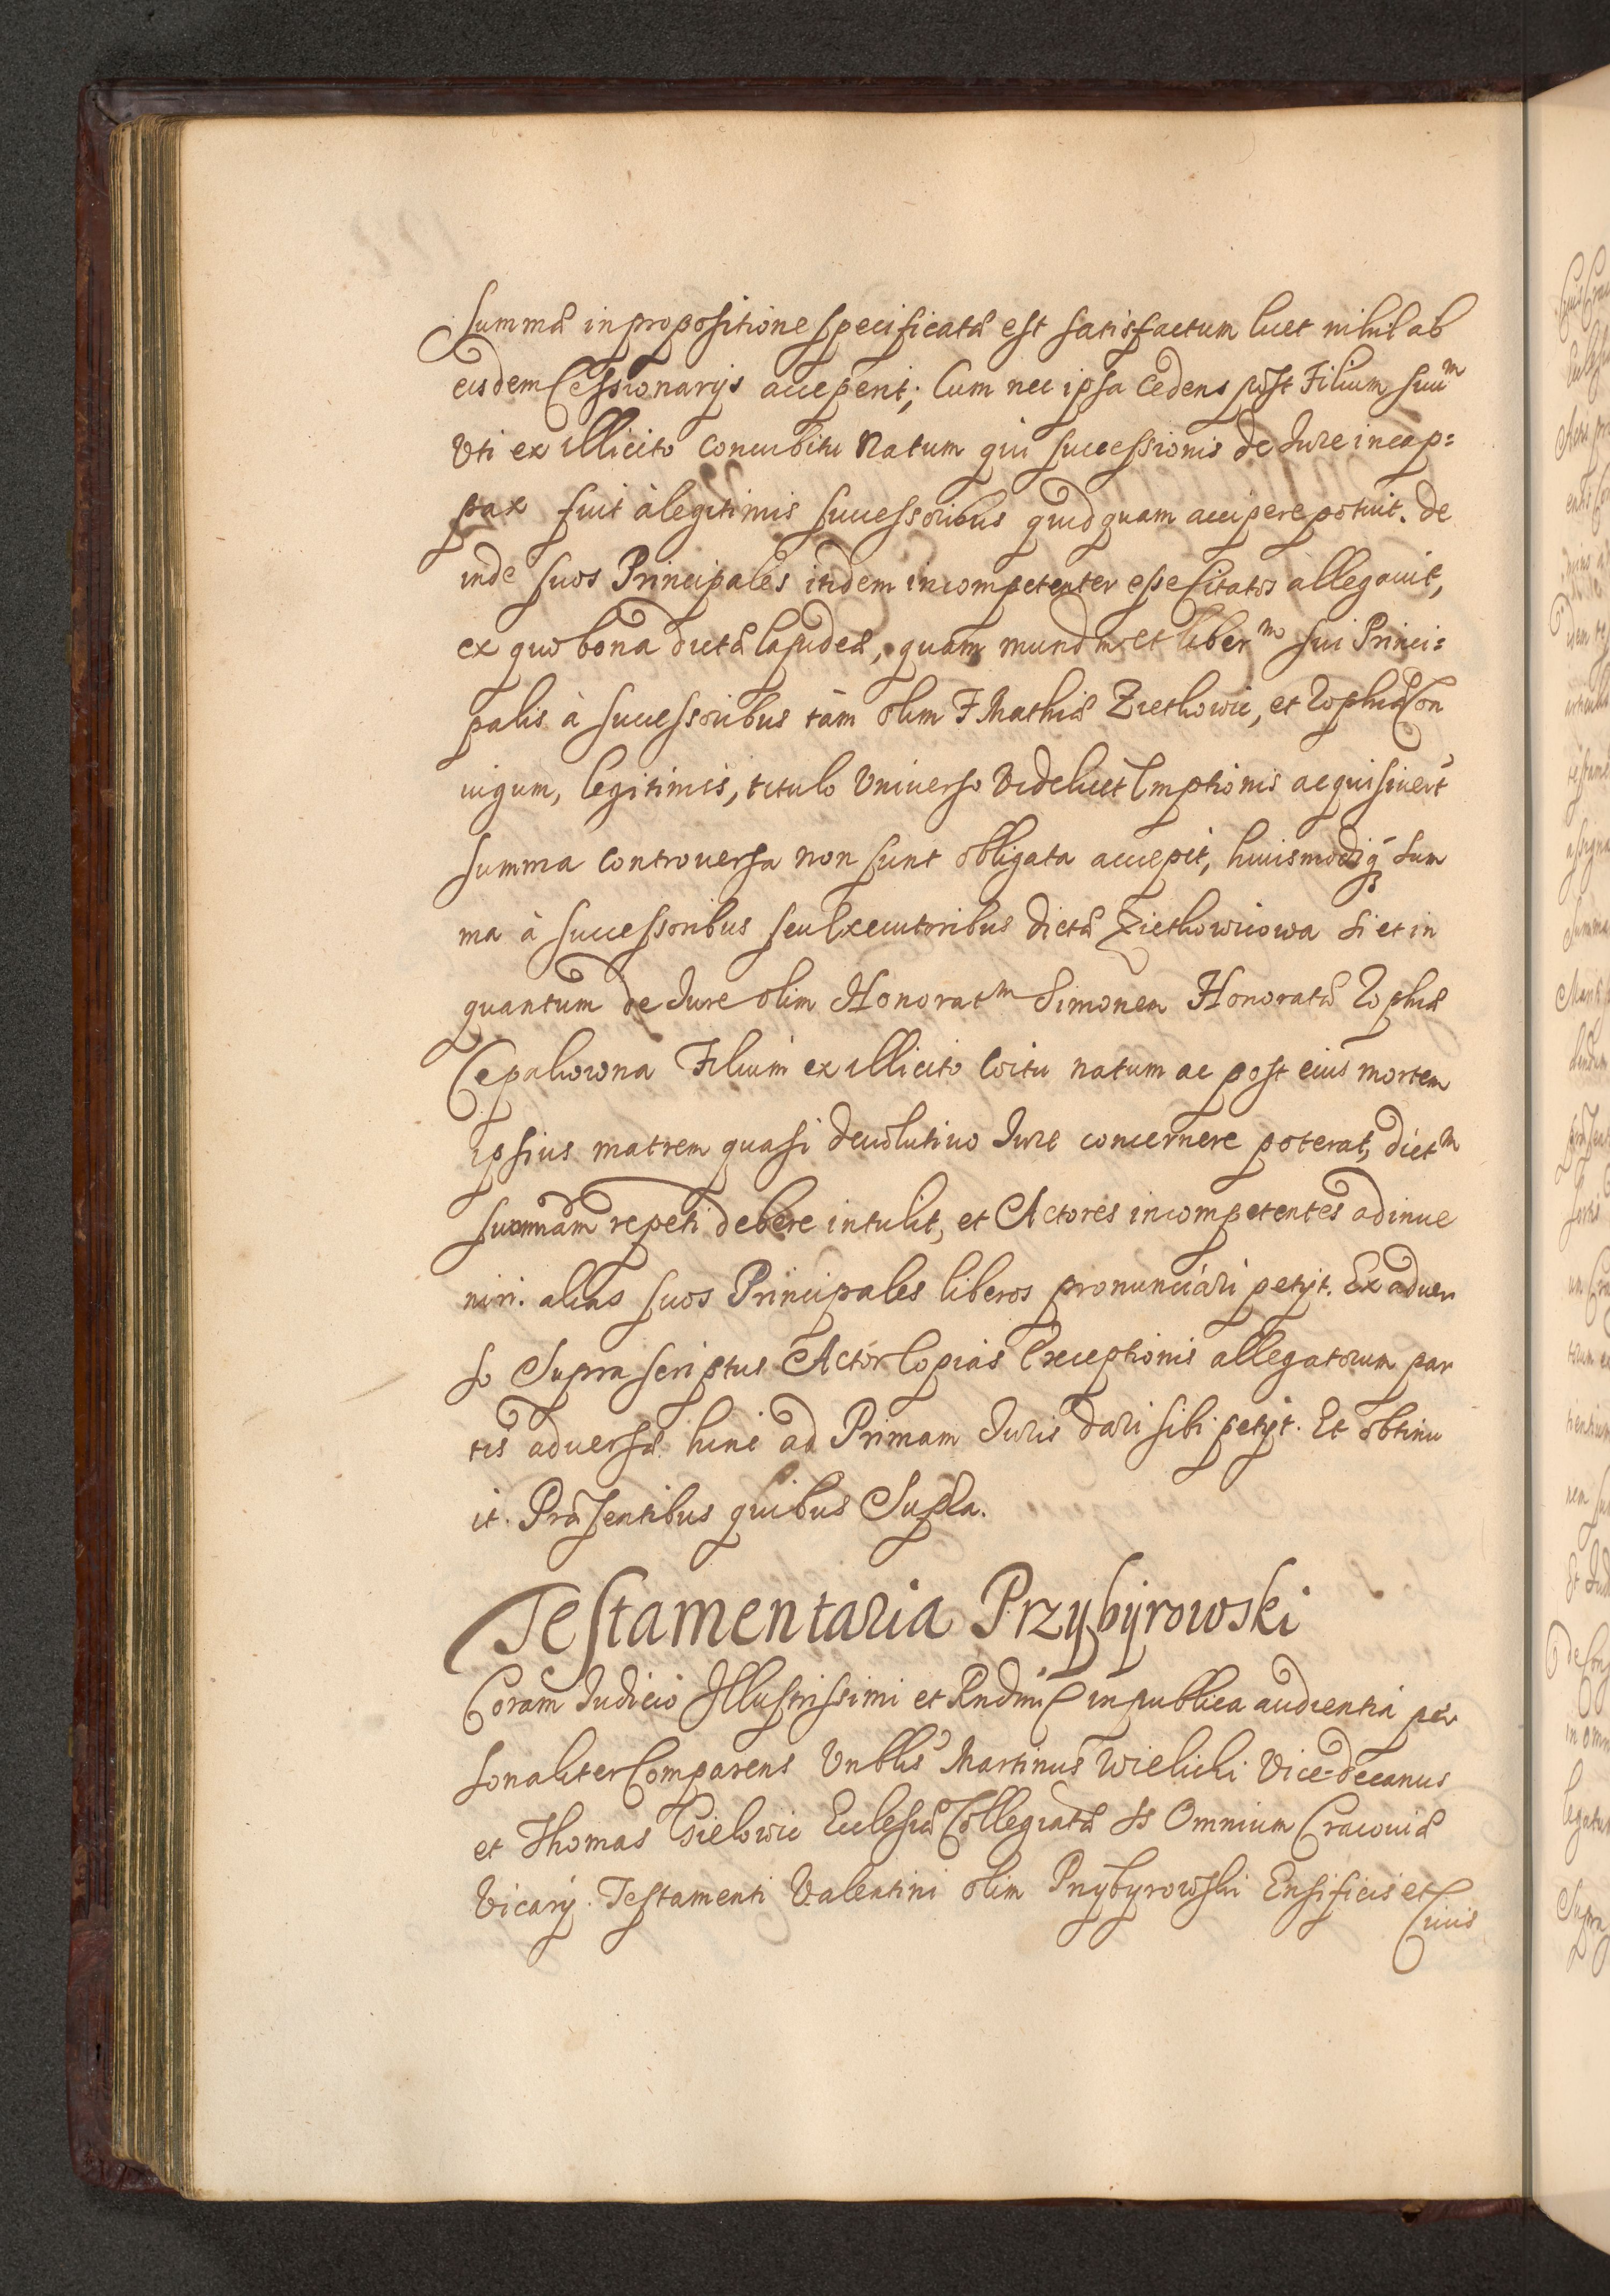 Summæ in propositione specificatæ est satisfactum licet nihil ab
eisdem Cessionarijs acceperit; Cum nec ipsa Cedens post Filium suu͂m
Vti ex illicito concubitu Natum qui successionis de Jure incap=
pax fuit à legitimis successoribus quidquam accipere potuit. De
inde suos Principales itidem incompetenter esse Citatos allegauit,
ex quo bona dictæ lapideæ, quam mundm et liberm sui Princi=
palis à successoribus tàm olim F Mathiæ Ziethowic, et Zophiæ Con
iugum, legitimis, titulo Vniverso Videlicet Emptionis acquisiuert
summa controuersa non sunt obligata accepit, huiusmodiq3 Sum
ma à successoribus seu Executoribus dictæ Ziethowicowa si et in
quantum de Jure olim Honoratm Simonem Honoratæ Zophiæ
Cepaliowna Filium ex illicito Coitu natum ac post eius mortem
ipsius matrem quasi deuolutiuo Jure concernere poterat, dictm
summam repeti debere intulit, et Actores incompetentes adinue
niri. alias suos Principales liberos pronunciari petijt. Ex aduer
so Supra scriptus Actor Copias Exceptionis allegatorum par
tis aduersæ hinc ad Primam Juris dari sibi petijt. Et obtinu
it. Præsentibus quibus Supra.
Testamentaria Przybyrowski
Coram Judicio Illustrissimi et Rndmi in publica audientia per
sonaliter Comparens Vnblis Martinus Wielicki Vice-decanus
et Thomas Gielowic Ecclesiæ Collegiatæ SS Omnium Cracouiæ
Vicarij. Testamenti Valentini olim Przybyrowski Ensificis et
Ciuis